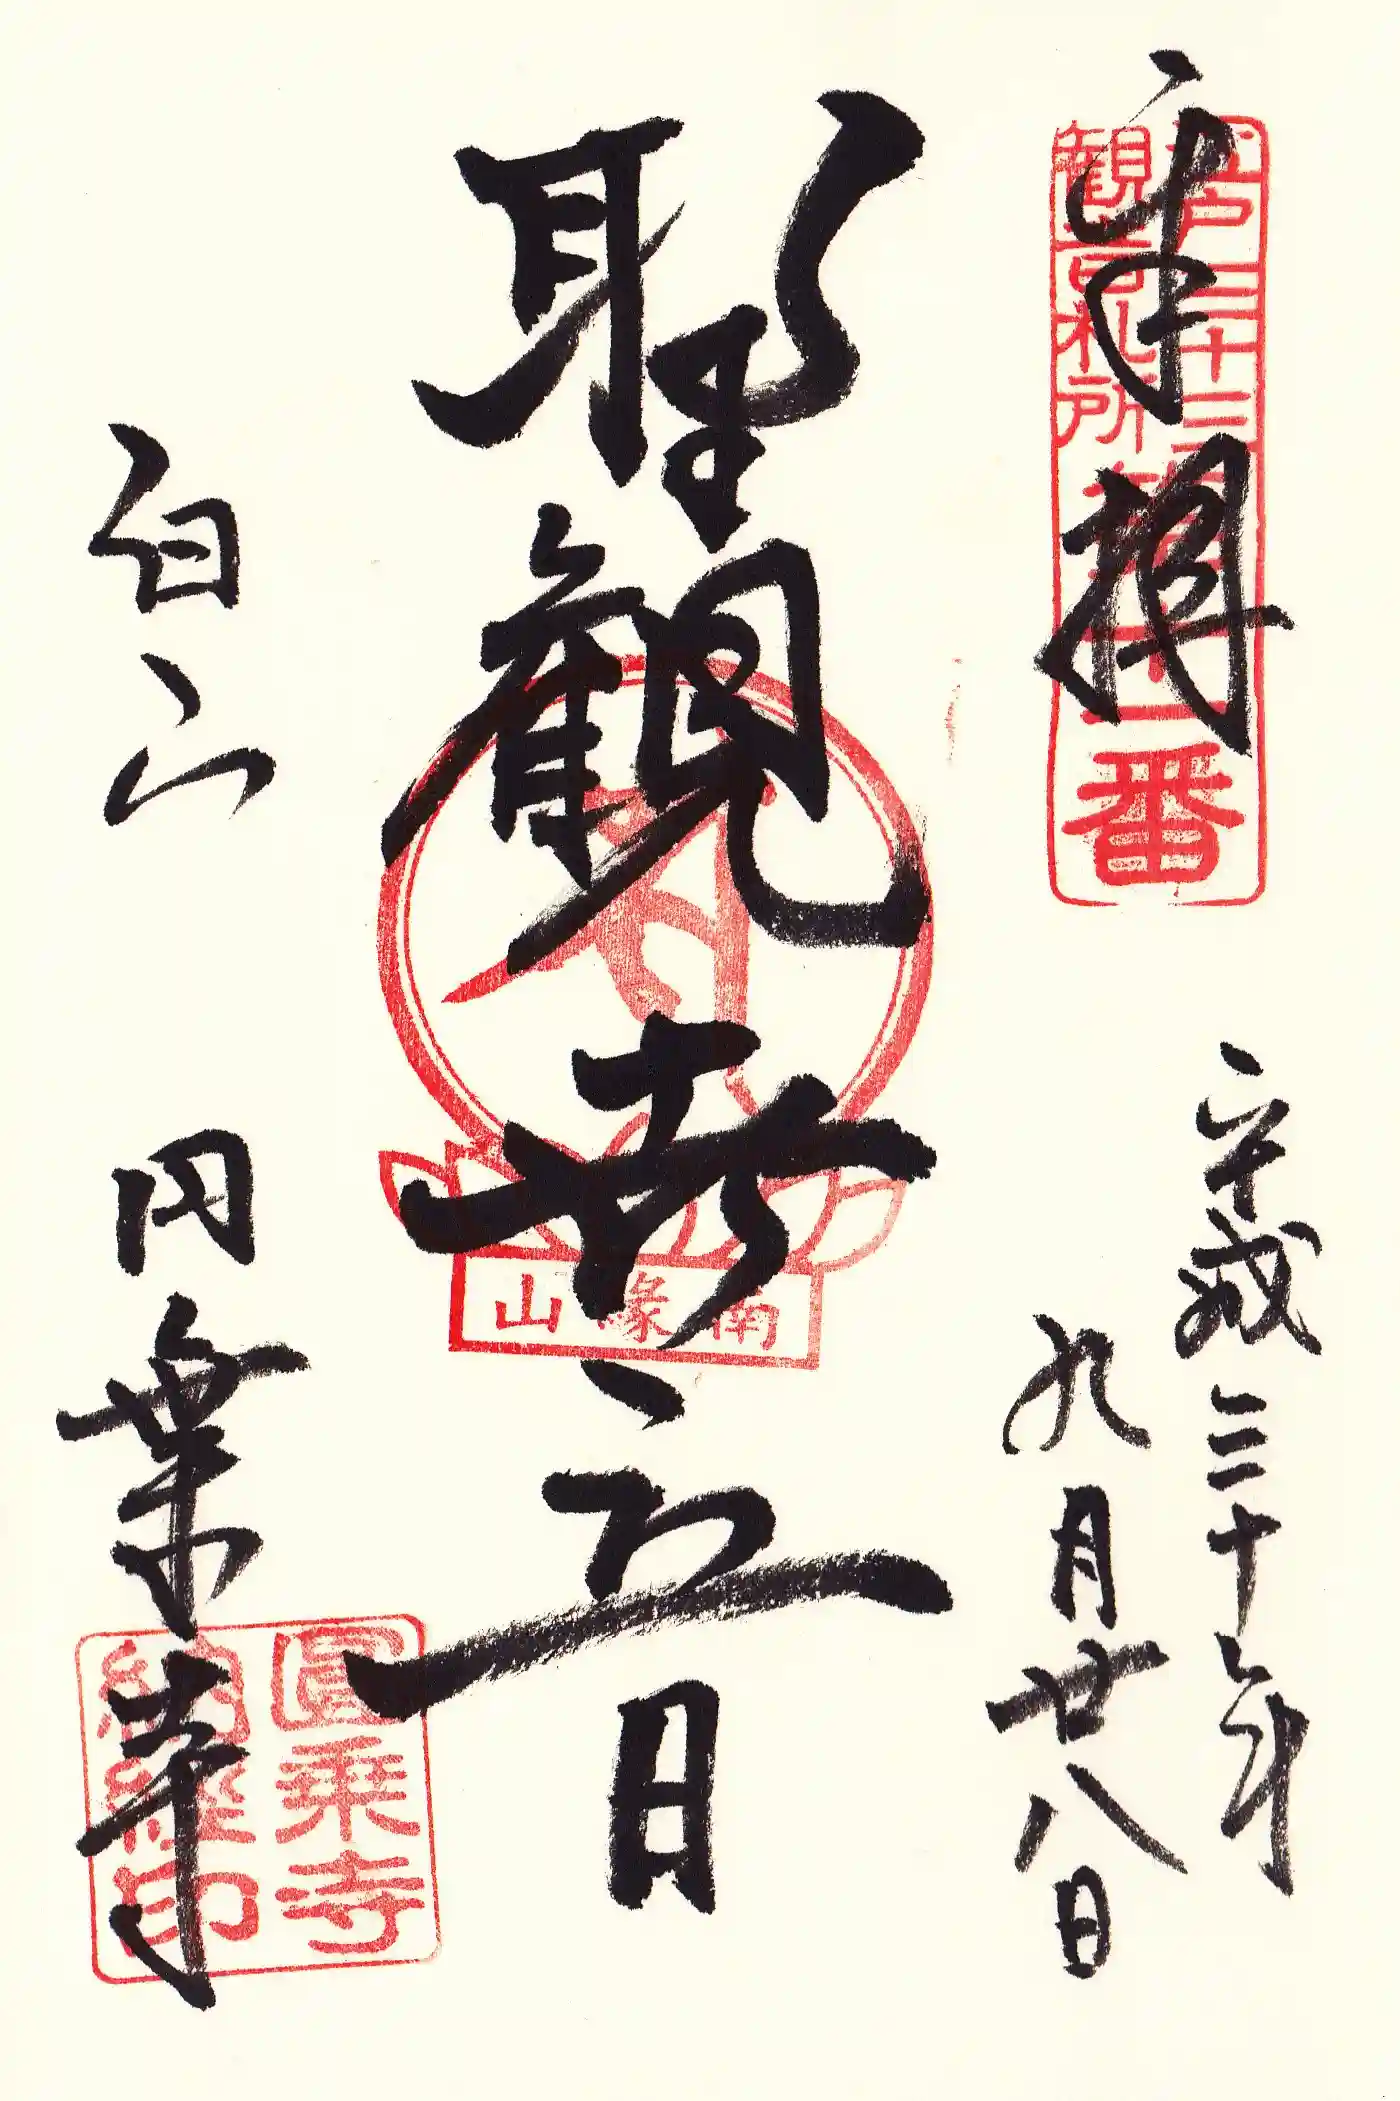 奉拝
江戸三十三
観音札所
第十一番
平成三十年
九月廿八日
聖観世音
南縁山
白山 円乗寺
圓乗寺
納経印